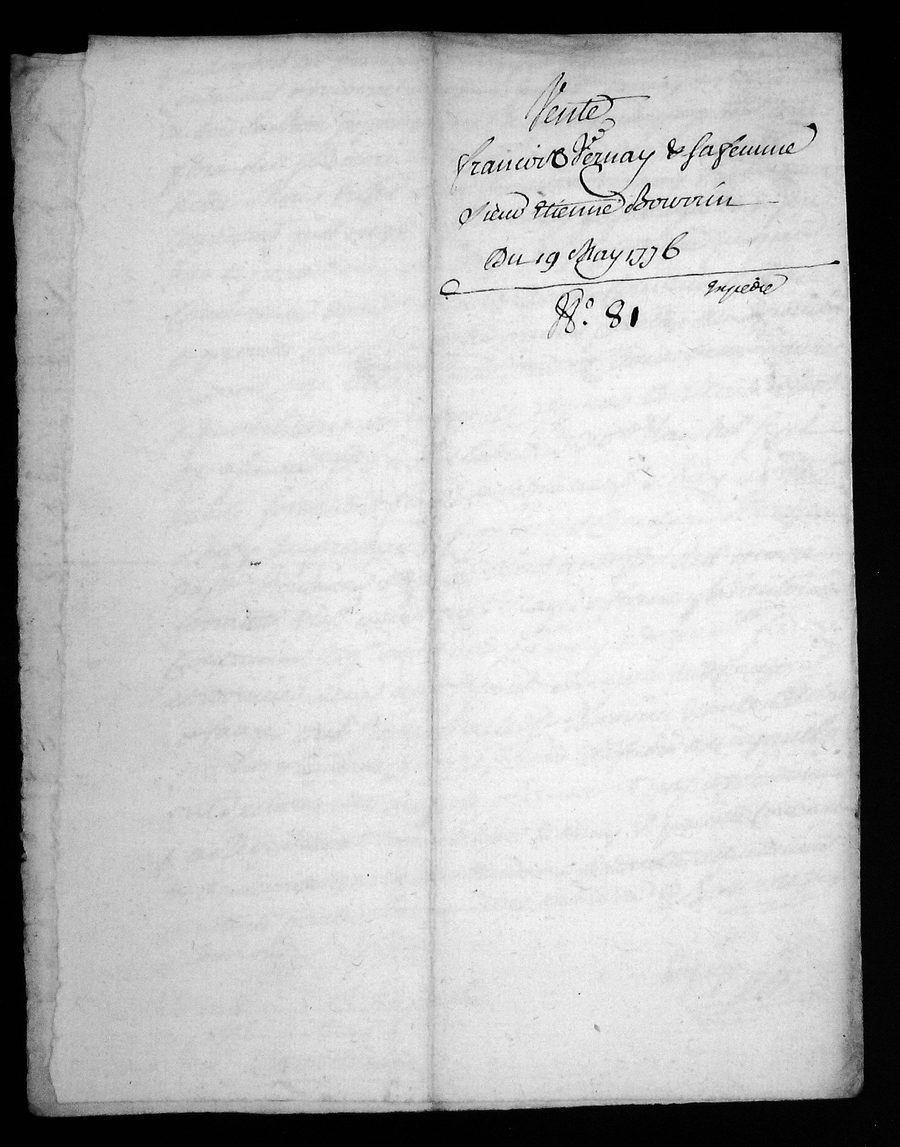 Vente
francois Vernay & sa femme
Sieur Etienne
Du 19 May 1776
Expedié
No. 81